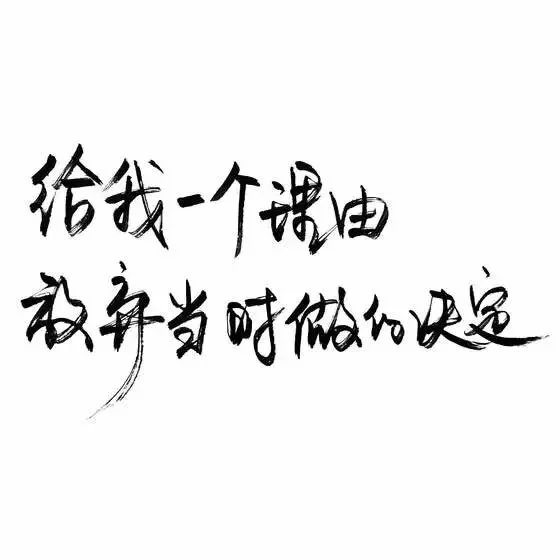 给我一个理由
放弃当时做的决定